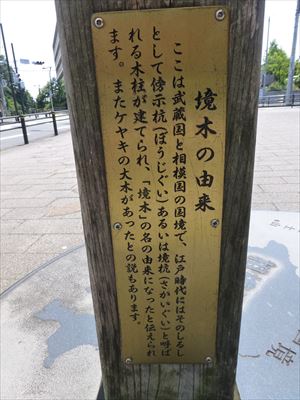 境木の由来
ここは武蔵国と相模国の国境で、江戸時代にはそのしるし
として傍示杭(ぼうじぐい)あるいは境杭(さかいぐい)と呼ば
れる木柱が建てられ、「境木」の名の由来になったと伝えられ
ます。またケヤキの大木があったとの説もあります。
境